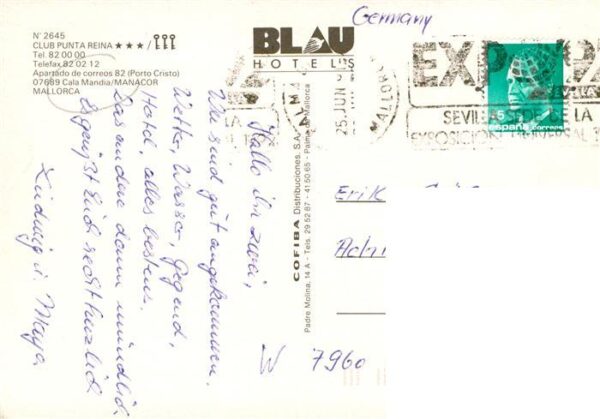 Germany
N° 2645
CLUB PUNTA REINA ★★★/
Tel. 82 00 00
Telefax 82 02 12
Apartado de correos 82 (Porto Cristo)
07689 Cala Mandia/MANACOR
MALLORCA
BLAU
HOTELS
25.JUN
MALLOR
EXPO 92
SEVILLA SEDE DE LA
EXPOSICION UNIVERSAL
45
españa correos
COFIBA Distribuciones, S.A.
Padre Molina, 14 A - Tels. 29 52 87 - 41 50 65 - Palma de Mallorca
Hallo ihr zwei,
Wir sind gut angekommen.
Wetter, Wasser, Gegend,
Hotel, alles bestens.
Das andere dann mündlich.
Es grüßt Euch recht herzlich
Ludwig u. Maya
Erik
W 7960